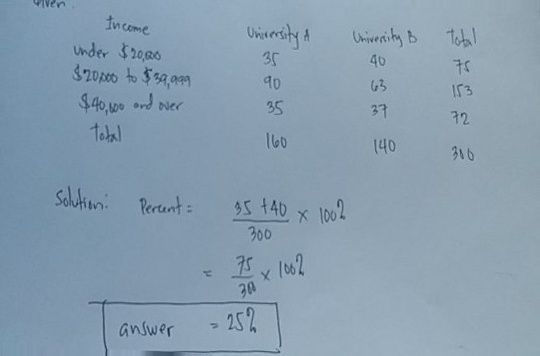 Given:
Income University A University B Total
under $20,000 35 40 75
$20,000 to $39,999 90 63 153
$40,000 and over 35 37 72
Total 160 140 300
Solution: Percent = 35 + 40 / 300 × 100%
= 75 / 300 × 100%
answer = 25%